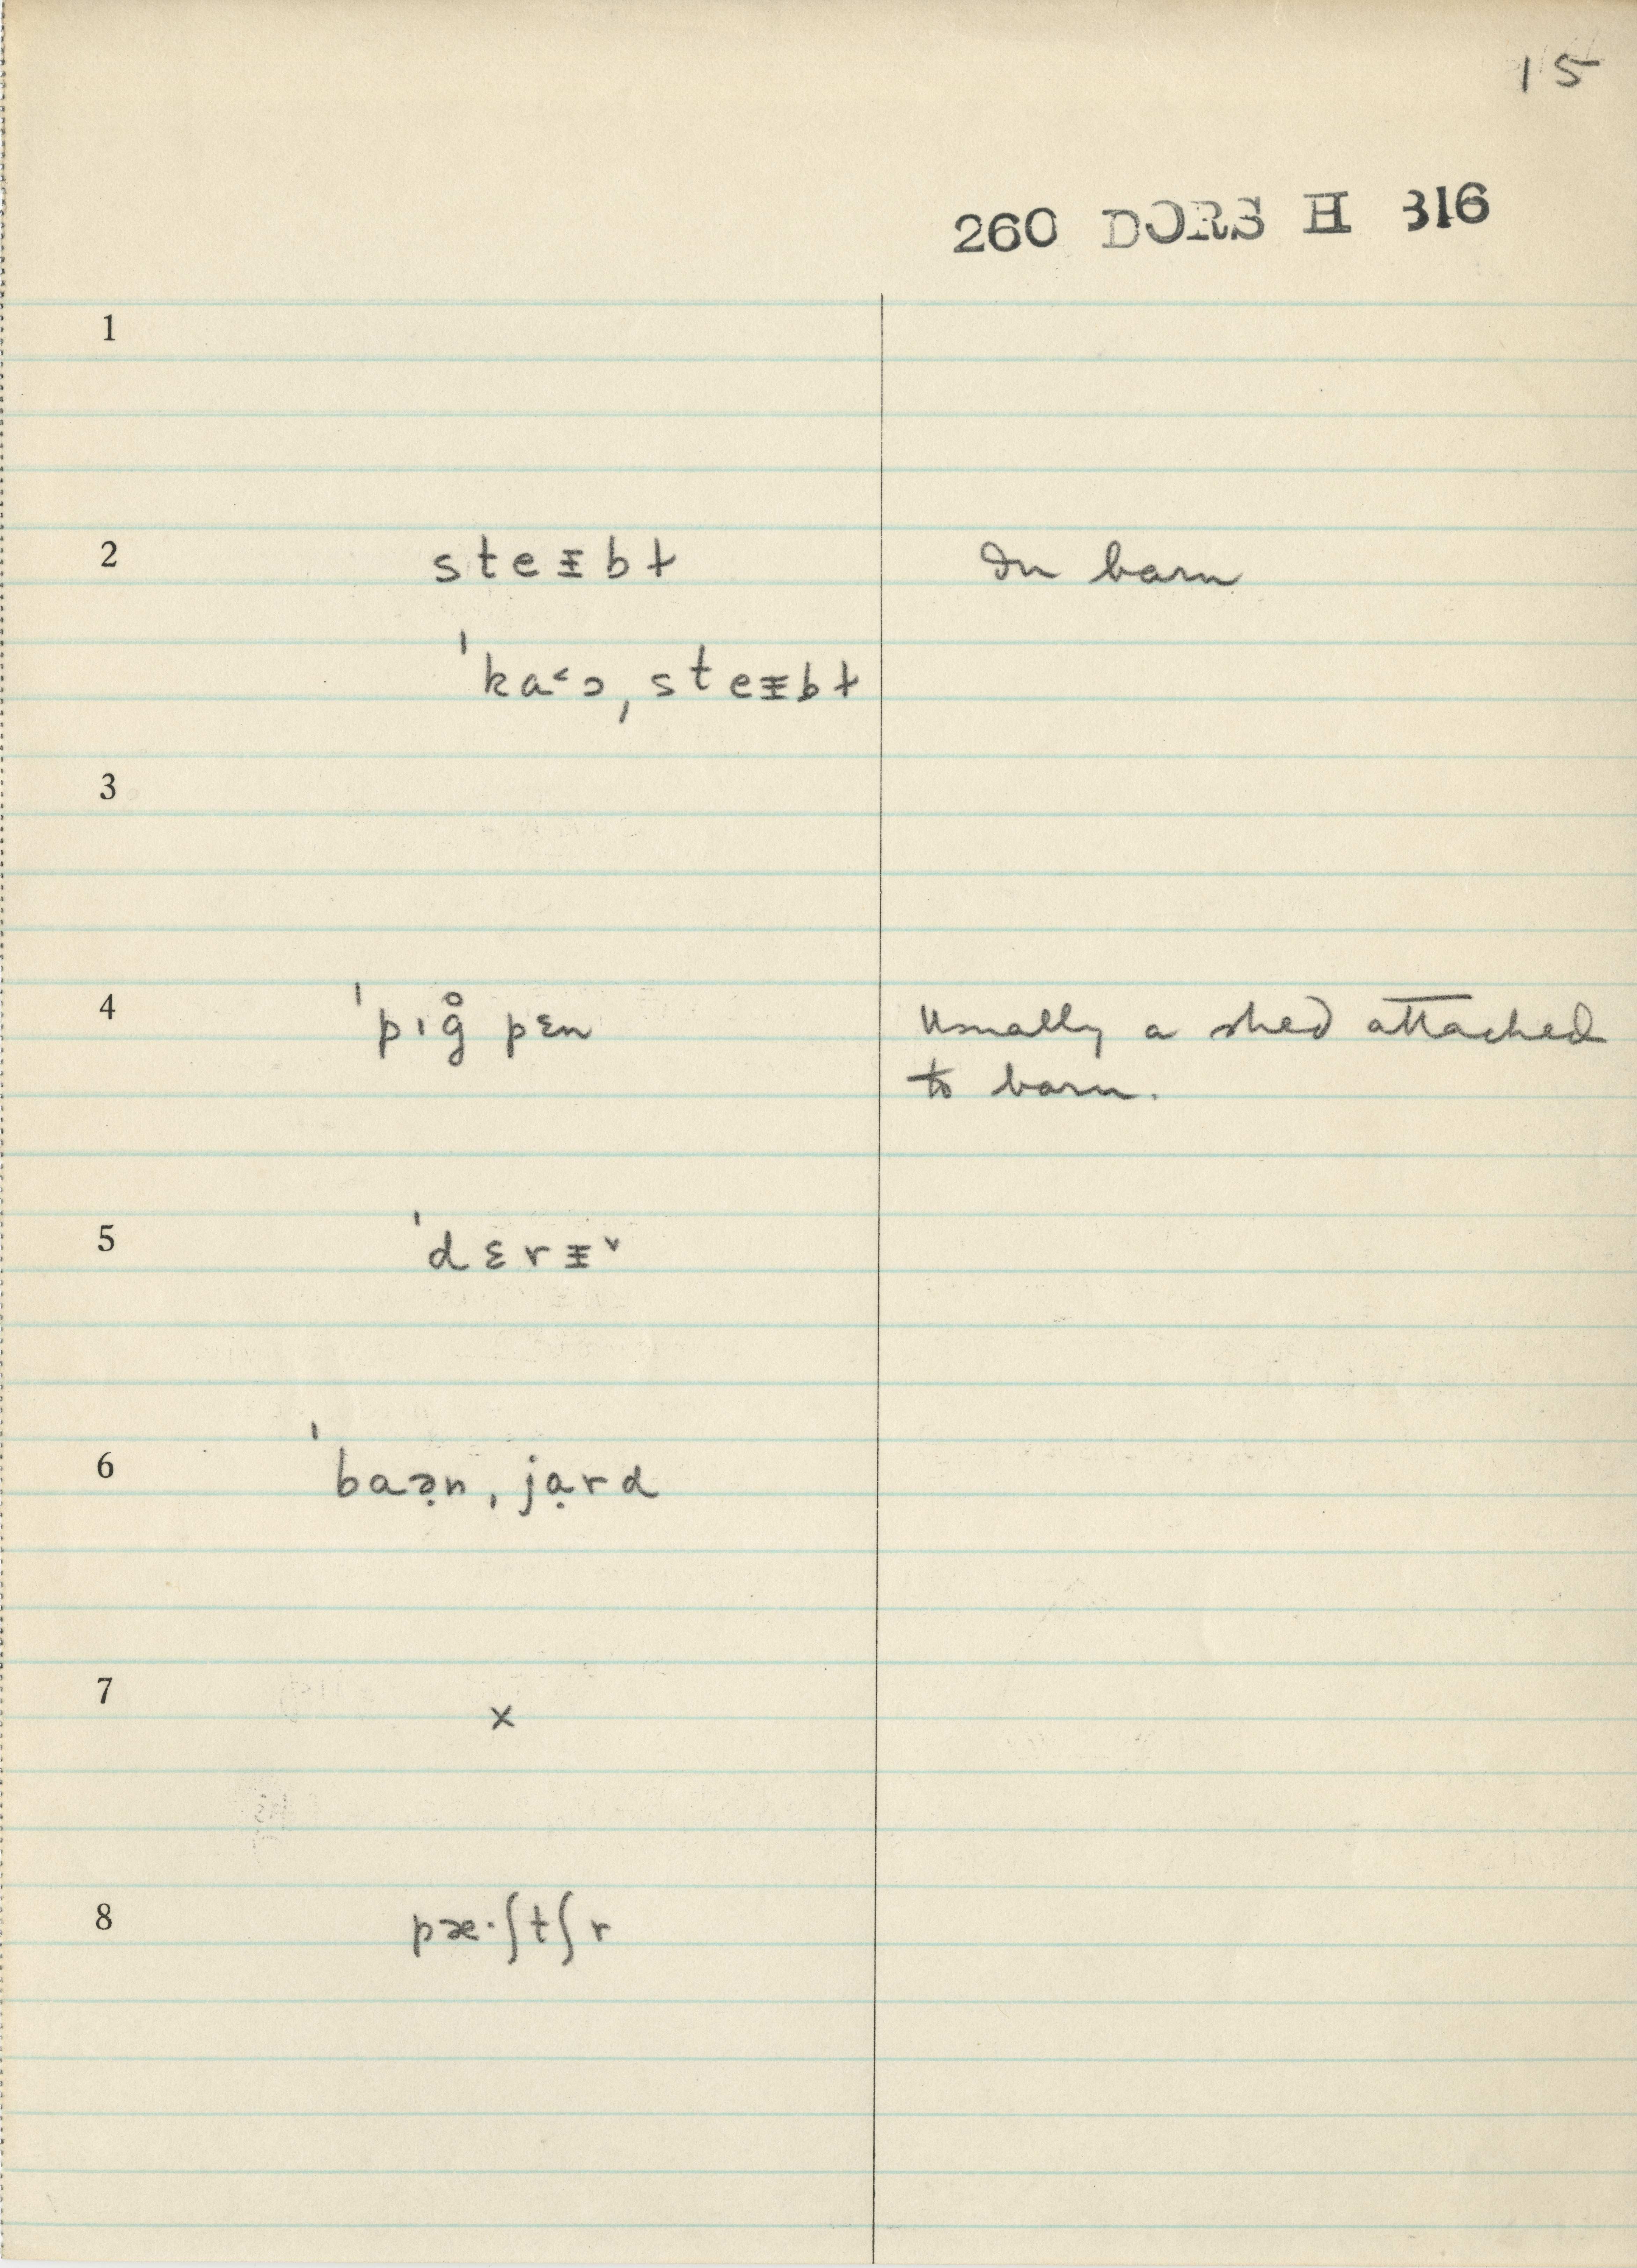 15
260 DORS H 316
1
2 steᵻbɫ In barn
ˈka˂ɔˌsteᵻbɫ
3
4 ˈpıg̊ pɛn Usually a shed attached
to barn.
5 ˈdɛrᵻ˅
6 ˈbaə̣nˌjạrd
7 x
8 pæ·ʃtʃr